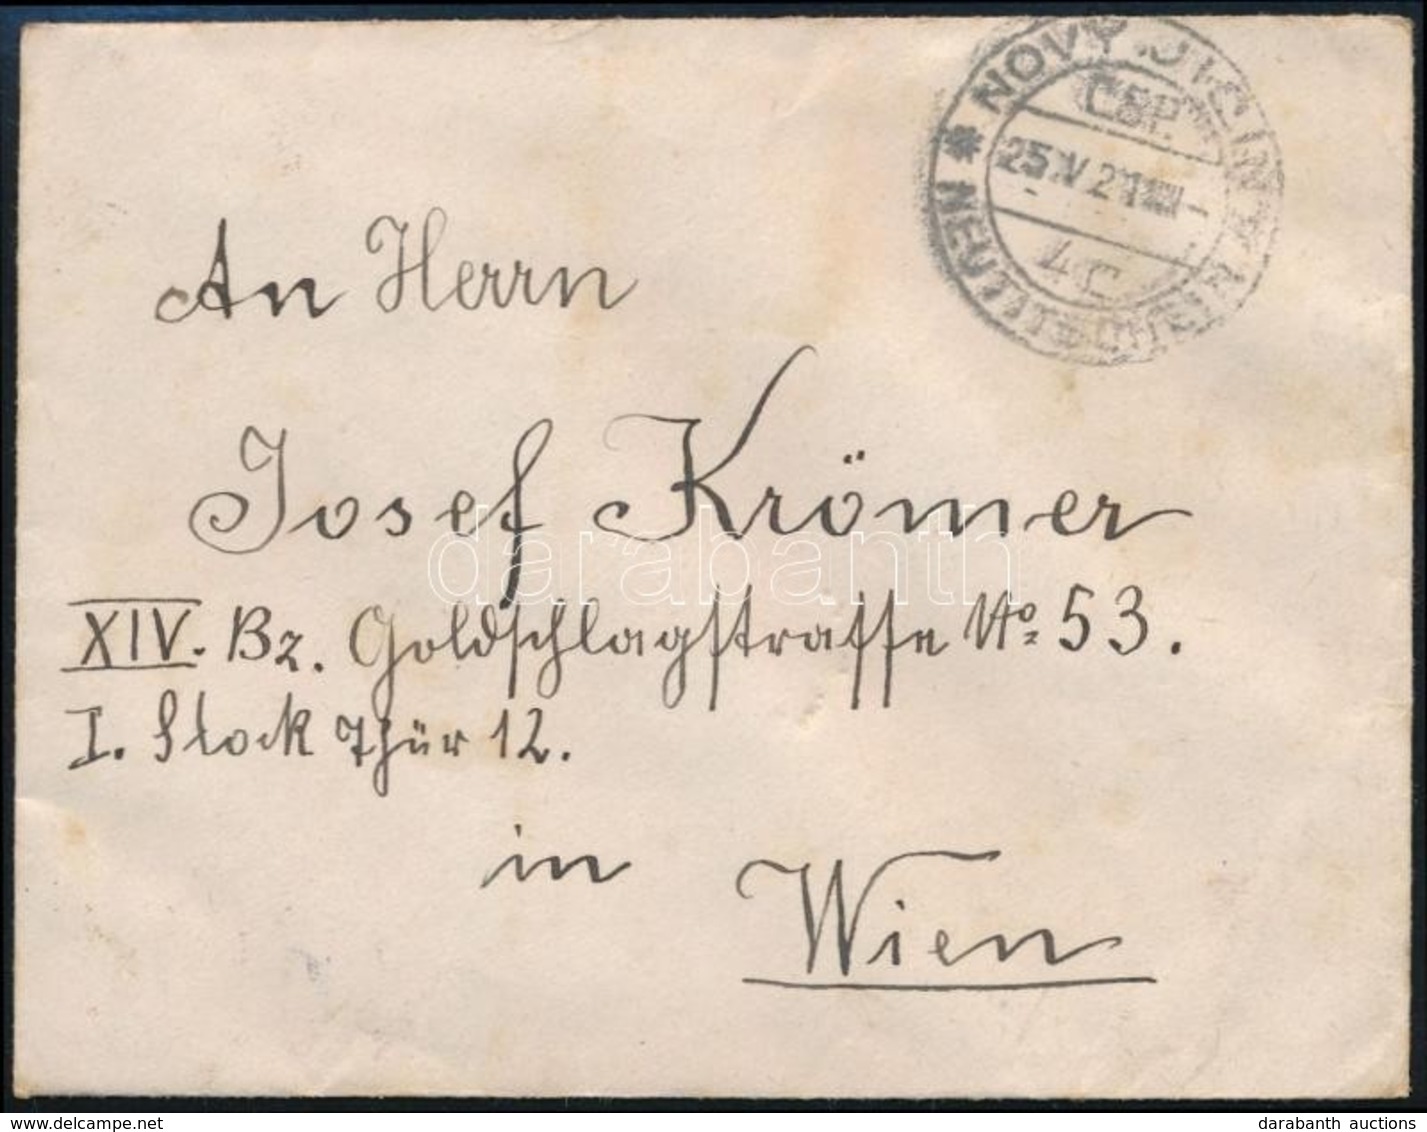 NOVÝ JIČÍN
ČSP.
25.V.21
4c
NEUTITSCHEIN
An Herrn
Josef Krömer
darabanth
XIV. Bz. Goldschlagstrasse No. 53.
I. Stock Thür 12.
in
Wien
delcampe.net
darabanth auctions